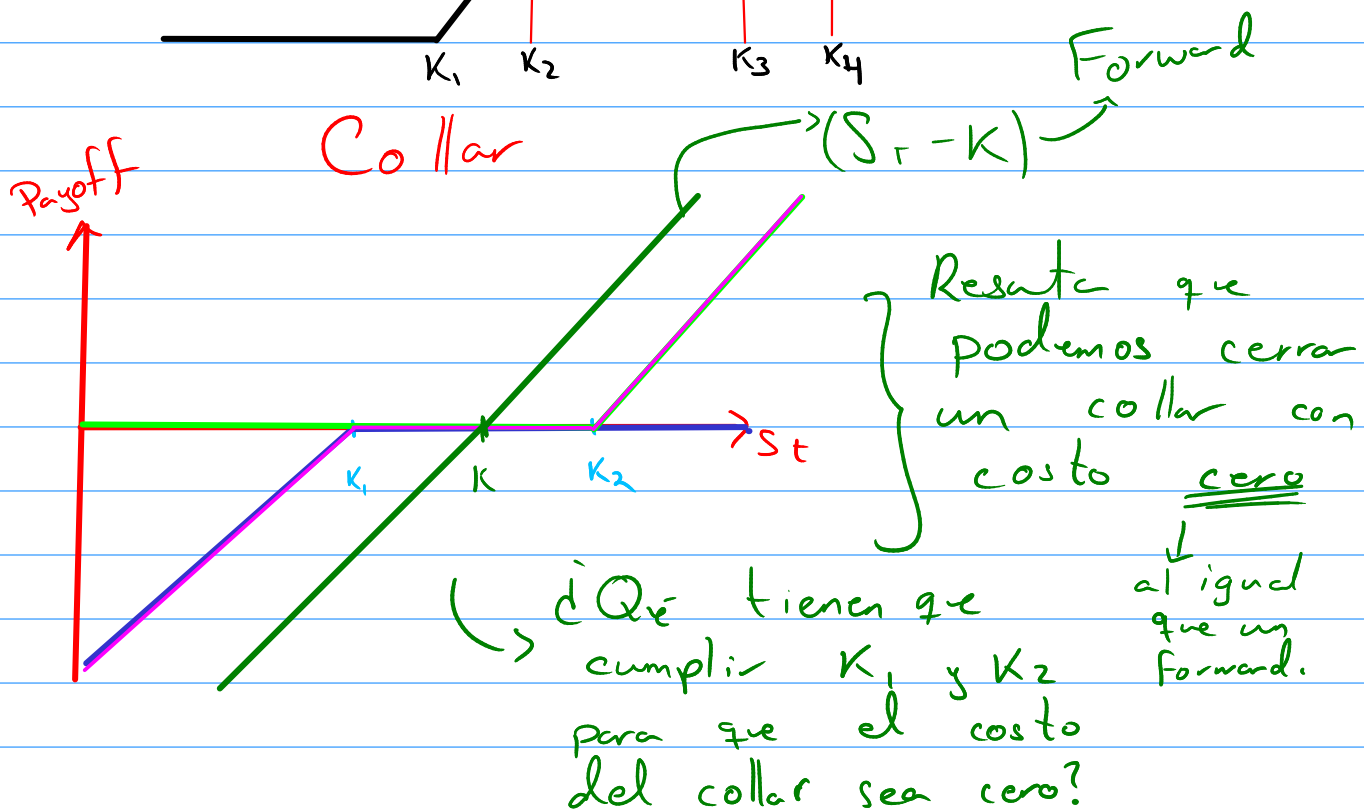 K₁ K₂ K₃ K₄
Forward
Collar
(S_T - K)
Payoff
S_t
K₁ K K₂
Resulta que
podemos cerrar
un collar con
costo cero
al igual
que un
forward.
¿Qué tienen que
cumplir K₁ y K₂
para que el costo
del collar sea cero?